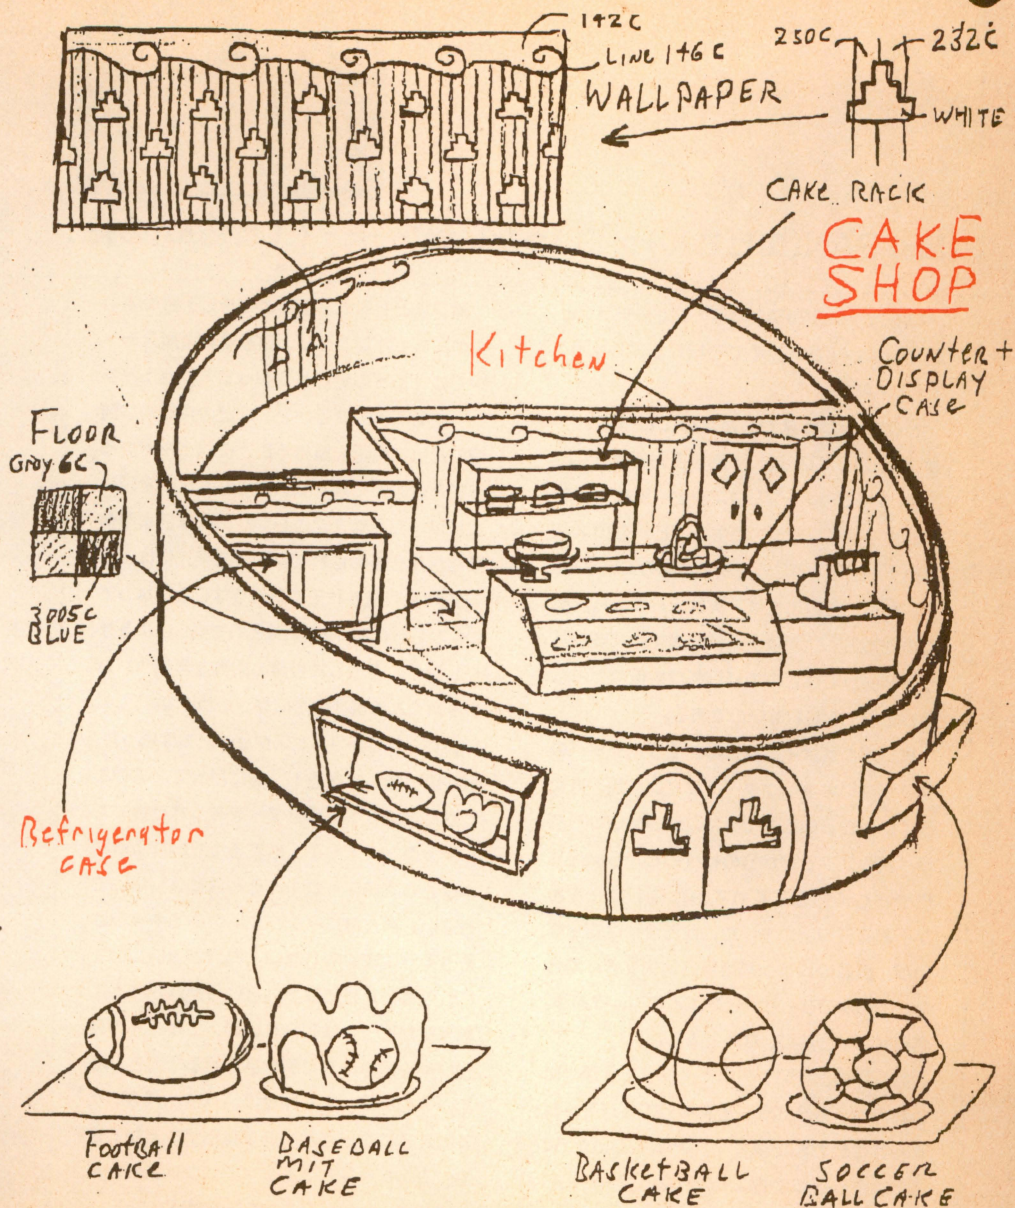 142C
LINE 146C
WALLPAPER
250C
232C
WHITE
CAKE RACK
CAKE
SHOP
Kitchen
COUNTER +
DISPLAY
CASE
FLOOR
Gray 6C
3005C
BLUE
Refrigerator
CASE
FOOTBALL
CAKE
BASEBALL
MIT
CAKE
BASKETBALL
CAKE
SOCCER
BALL CAKE